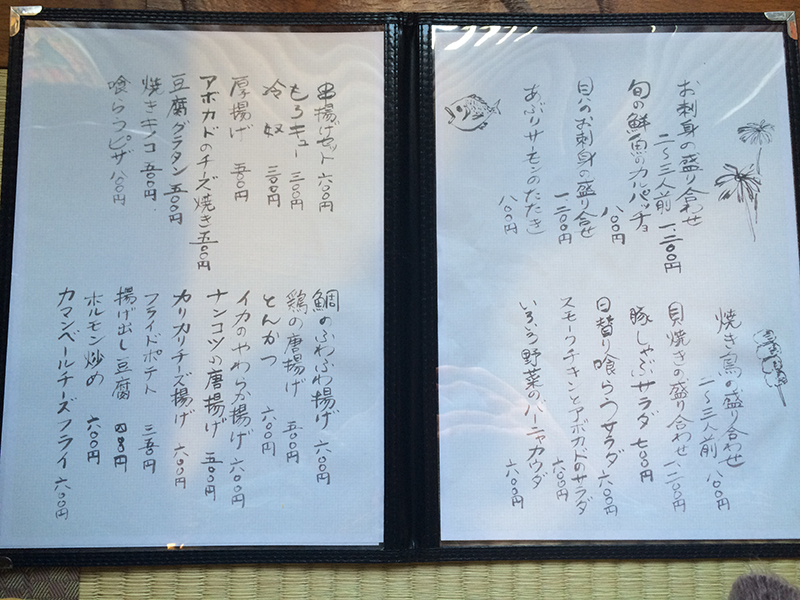 お刺身の盛り合わせ
二〜三人前 一二〇〇円
旬の鮮魚のカルパッチョ
八〇〇円
貝のお刺身の盛り合せ
一二〇〇円
あぶりサーモンのたたき
八〇〇円
焼き鳥の盛り合わせ
二〜三人前 八〇〇円
貝焼きの盛り合わせ 一二〇〇円
豚しゃぶサラダ 七〇〇円
日替り喰らうサラダ 六〇〇円
スモークチキンとアボカドのサラダ
六〇〇円
いろいろ野菜のバーニャカウダ
六〇〇円
串揚げセット 六〇〇円
もろキュー 三〇〇円
冷奴 三〇〇円
厚揚げ 五〇〇円
アボカドのチーズ焼き 五〇〇円
豆腐グラタン 五〇〇円
焼きキノコ 五〇〇円
喰らうピザ 八〇〇円
鯛のふわふわ揚げ 六〇〇円
鶏の唐揚げ 五〇〇円
とんかつ 六〇〇円
イカのやわらか揚げ 六〇〇円
ナンコツの唐揚げ 五〇〇円
カリカリチーズ揚げ 六〇〇円
フライドポテト 三五〇円
揚げ出し豆腐 四五〇円
ホルモン炒め 六〇〇円
カマンベールチーズフライ 六〇〇円